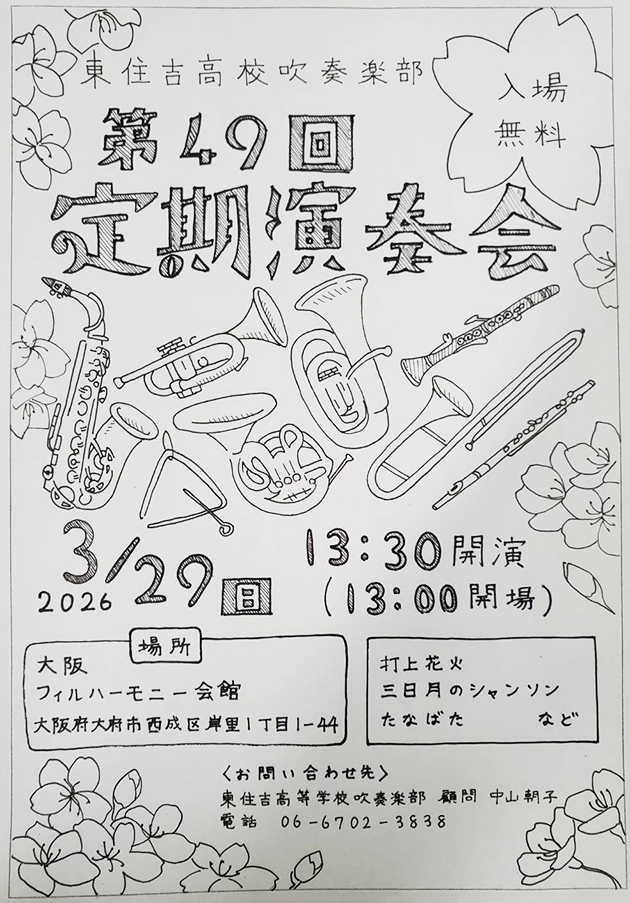 東住吉高校吹奏楽部
入場
無料
第49回
定期演奏会
3/29日
2026
13:30開演
(13:00開場)
場所
大阪
フィルハーモニー会館
大阪府大府市西成区岸里1丁目1-44
打上花火
三日月のシャンソン
たなばた など
〈お問い合わせ先〉
東住吉高等学校吹奏楽部 顧問 中山朝子
電話 06-6702-3838